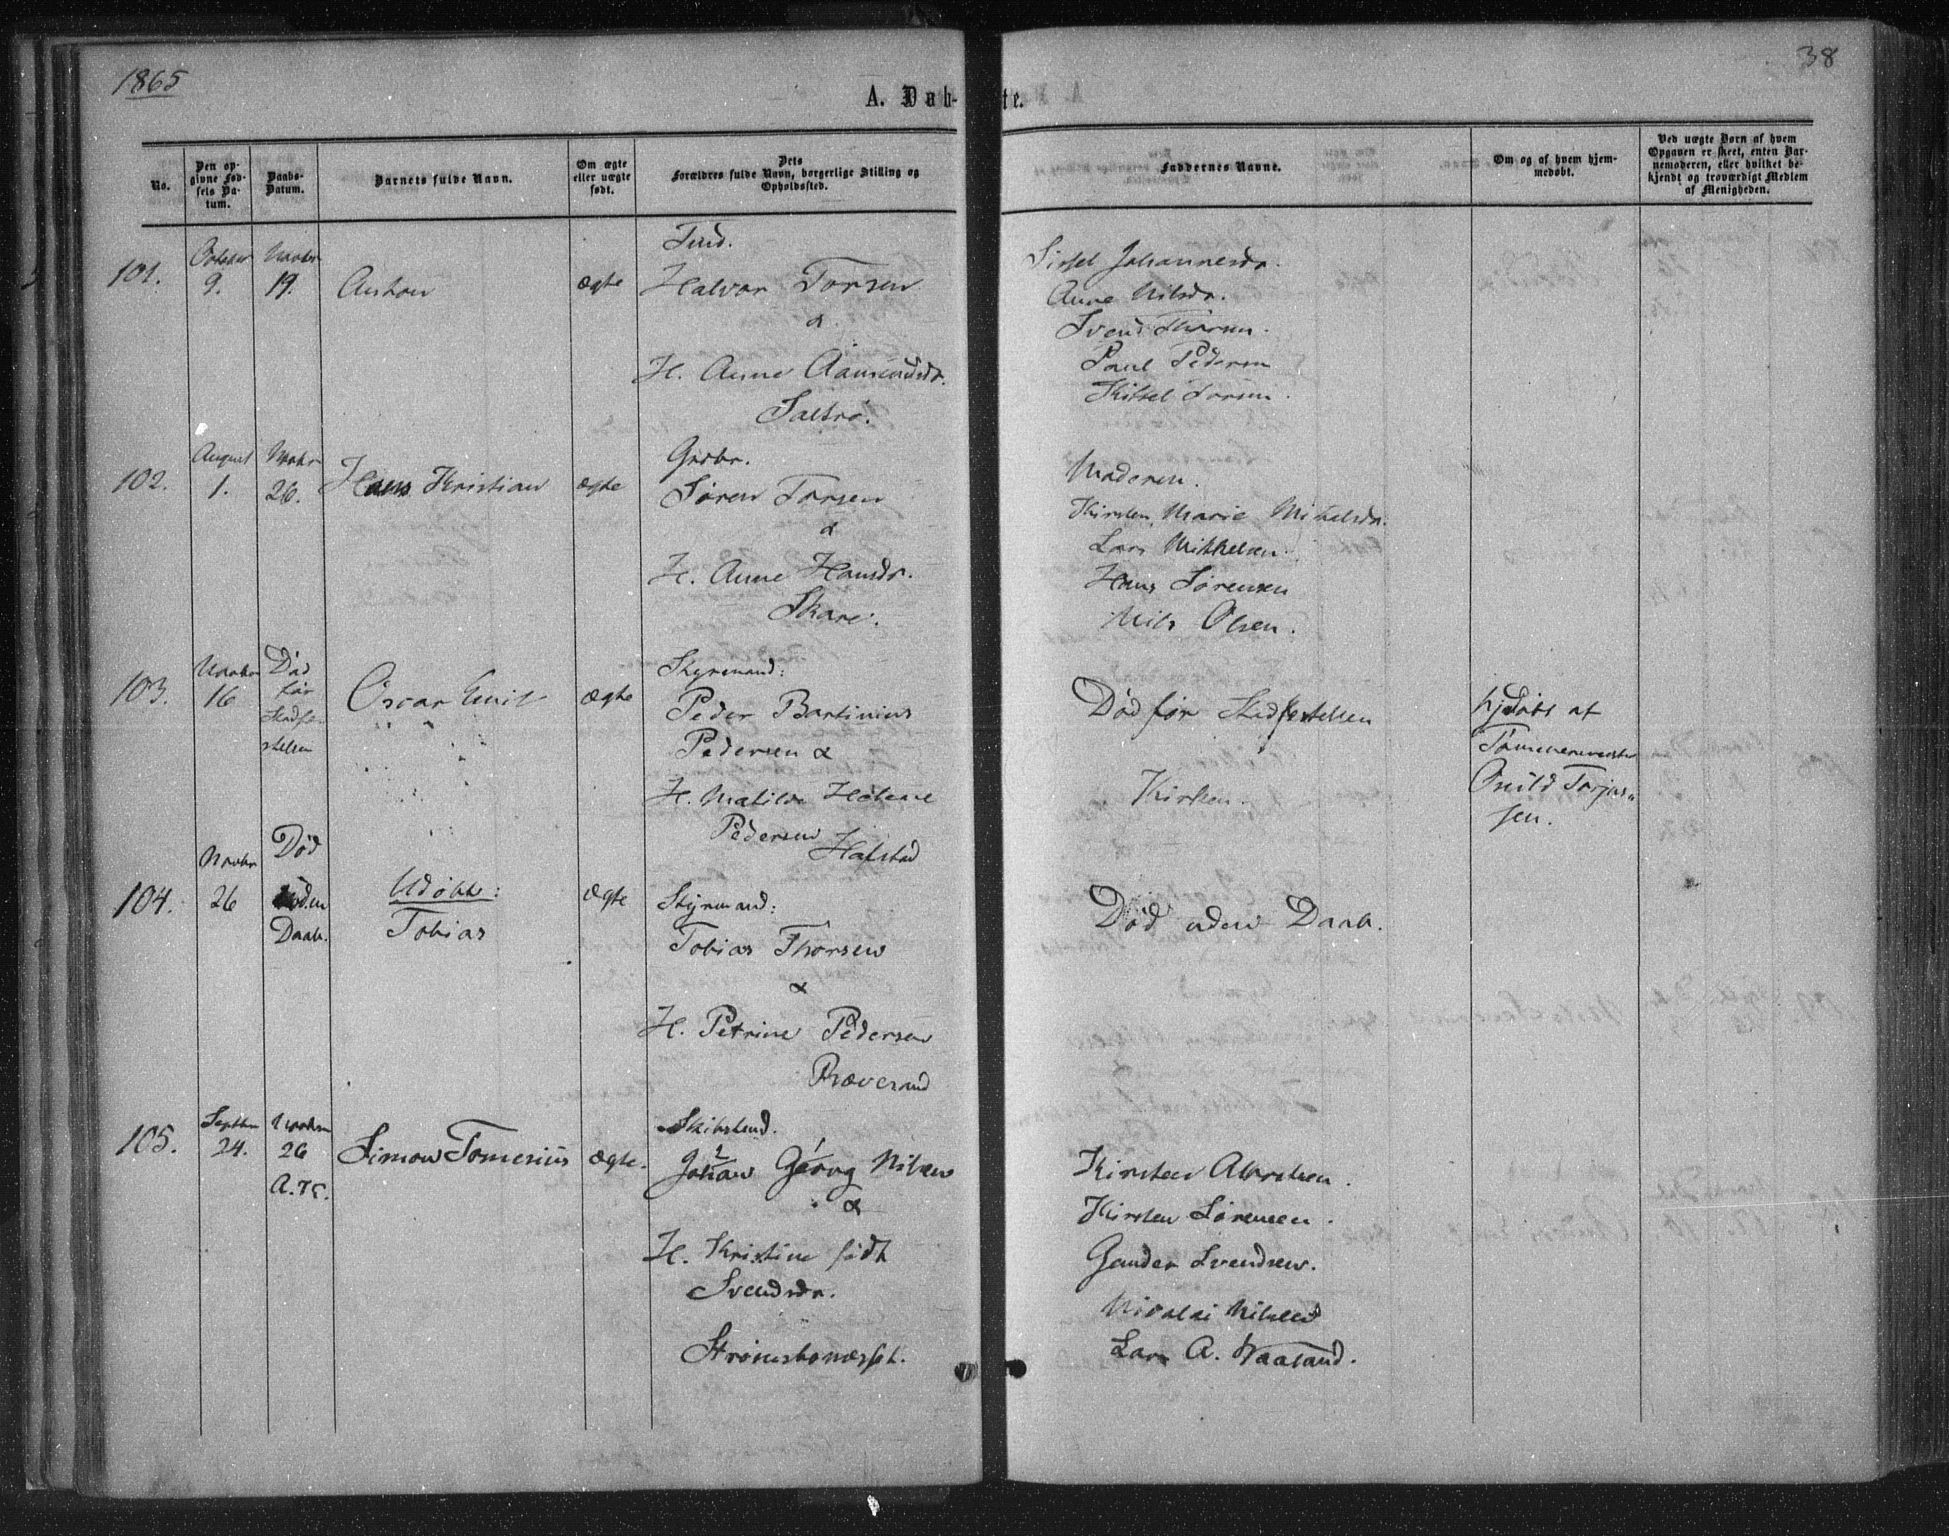 1865
38
A. Døb-
te.
No.
Den op-
givne Fød-
sels Da-
tum.
Daabs-
Datum.
Barnets fulde Navn.
Om ægte
eller uægte
født.
Dets
Forældres fulde Navn, borgerlige Stilling og
Opholdssted.
Faddernes Navne.
Om og af hvem hjem-
medøbt.
Ved uægte Børn af hvem
Opgaven er skeet, enten Bar-
nemoderen, eller hvilket be-
kjendt og troværdigt Medlem
af Menigheden.
101.
October
9.
Novbr
19.
ægte
Halvor Torsen
&
H. Anne Aamundsdr.
Saltrø.
Sissel Johannesdr.
Anne Nilsdr.
Svend
Paul Pedersen
Kittel Torsen.
102.
August
1.
Novbr
26.
Hans Kristian
ægte
Grdbr.
Søren Torsen
&
H. Anne Hansdr.
Skare.
Moderen.
Kirsten Marie Mikelsdr.
Lars Mikkelsen.
Hans Sørensen
Nils Olsen.
103.
Novbr
16
Død
før
Stadfæ-
stelsen
Oscar Emil
ægte
Styrmand:
Peder Bartinius
Pedersen &
H. Matilde Helene
Pedersen
Død før Stadfæstelsen
Kirken.
hjdøbt af
Tømmermester
Onild Torjus-
sen.
104.
Novbr
26
Død
uden
Daab.
Udøbt:
Tobias
ægte
Styrmand:
Tobias Thorsen
&
H. Petrine Pedersen
Død uden Daab.
105.
Septbr
24.
Novbr
26
A.K.
Simon Tomenius
ægte.
Skibstmd.
Johan Georg Nilsen
&
H. Kristine født
Svendsdr.
Strømsbonæsset.
Kirsten
Kirsten Sørensen.
Gunder Svendsen.
Nicolai Nilsen
Lars A. Vaaland.